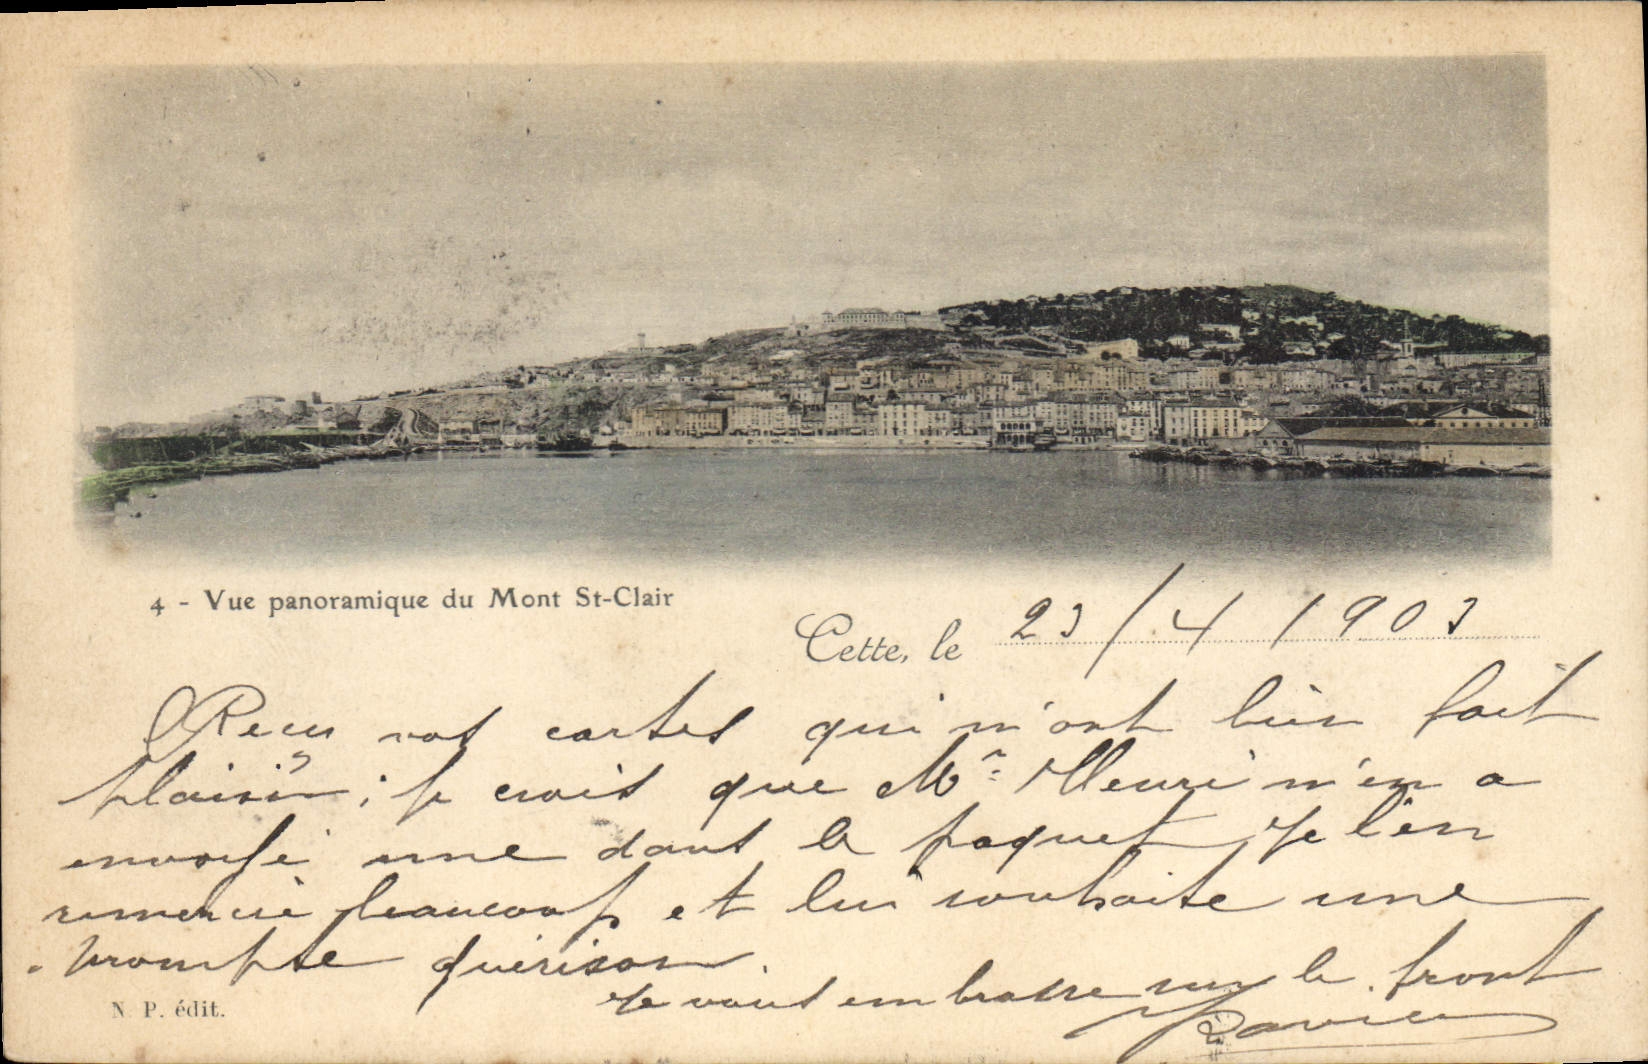 4 - Vue panoramique du Mont St-Clair
Cette, le 23/4/1903
Recu vos cartes qui m'ont bien fait
plaisir; je crois que Mr. m'en a
envoyé une dans le paquet je l'en
remercie beaucoup et lui souhaite une
prompte guérison.
Je vous embrasse sur le front
N. P. édit.